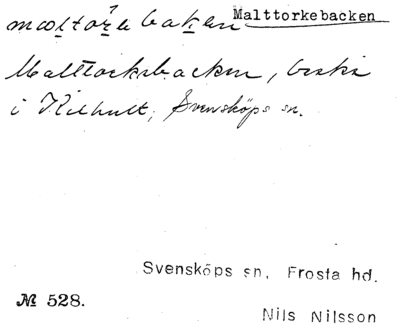 Malttorkebacken
Malttorksbacken, backe
i Kilhult, Svensköps sn.
Svensköps sn, Frosta hd.
№ 528.
Nils Nilsson